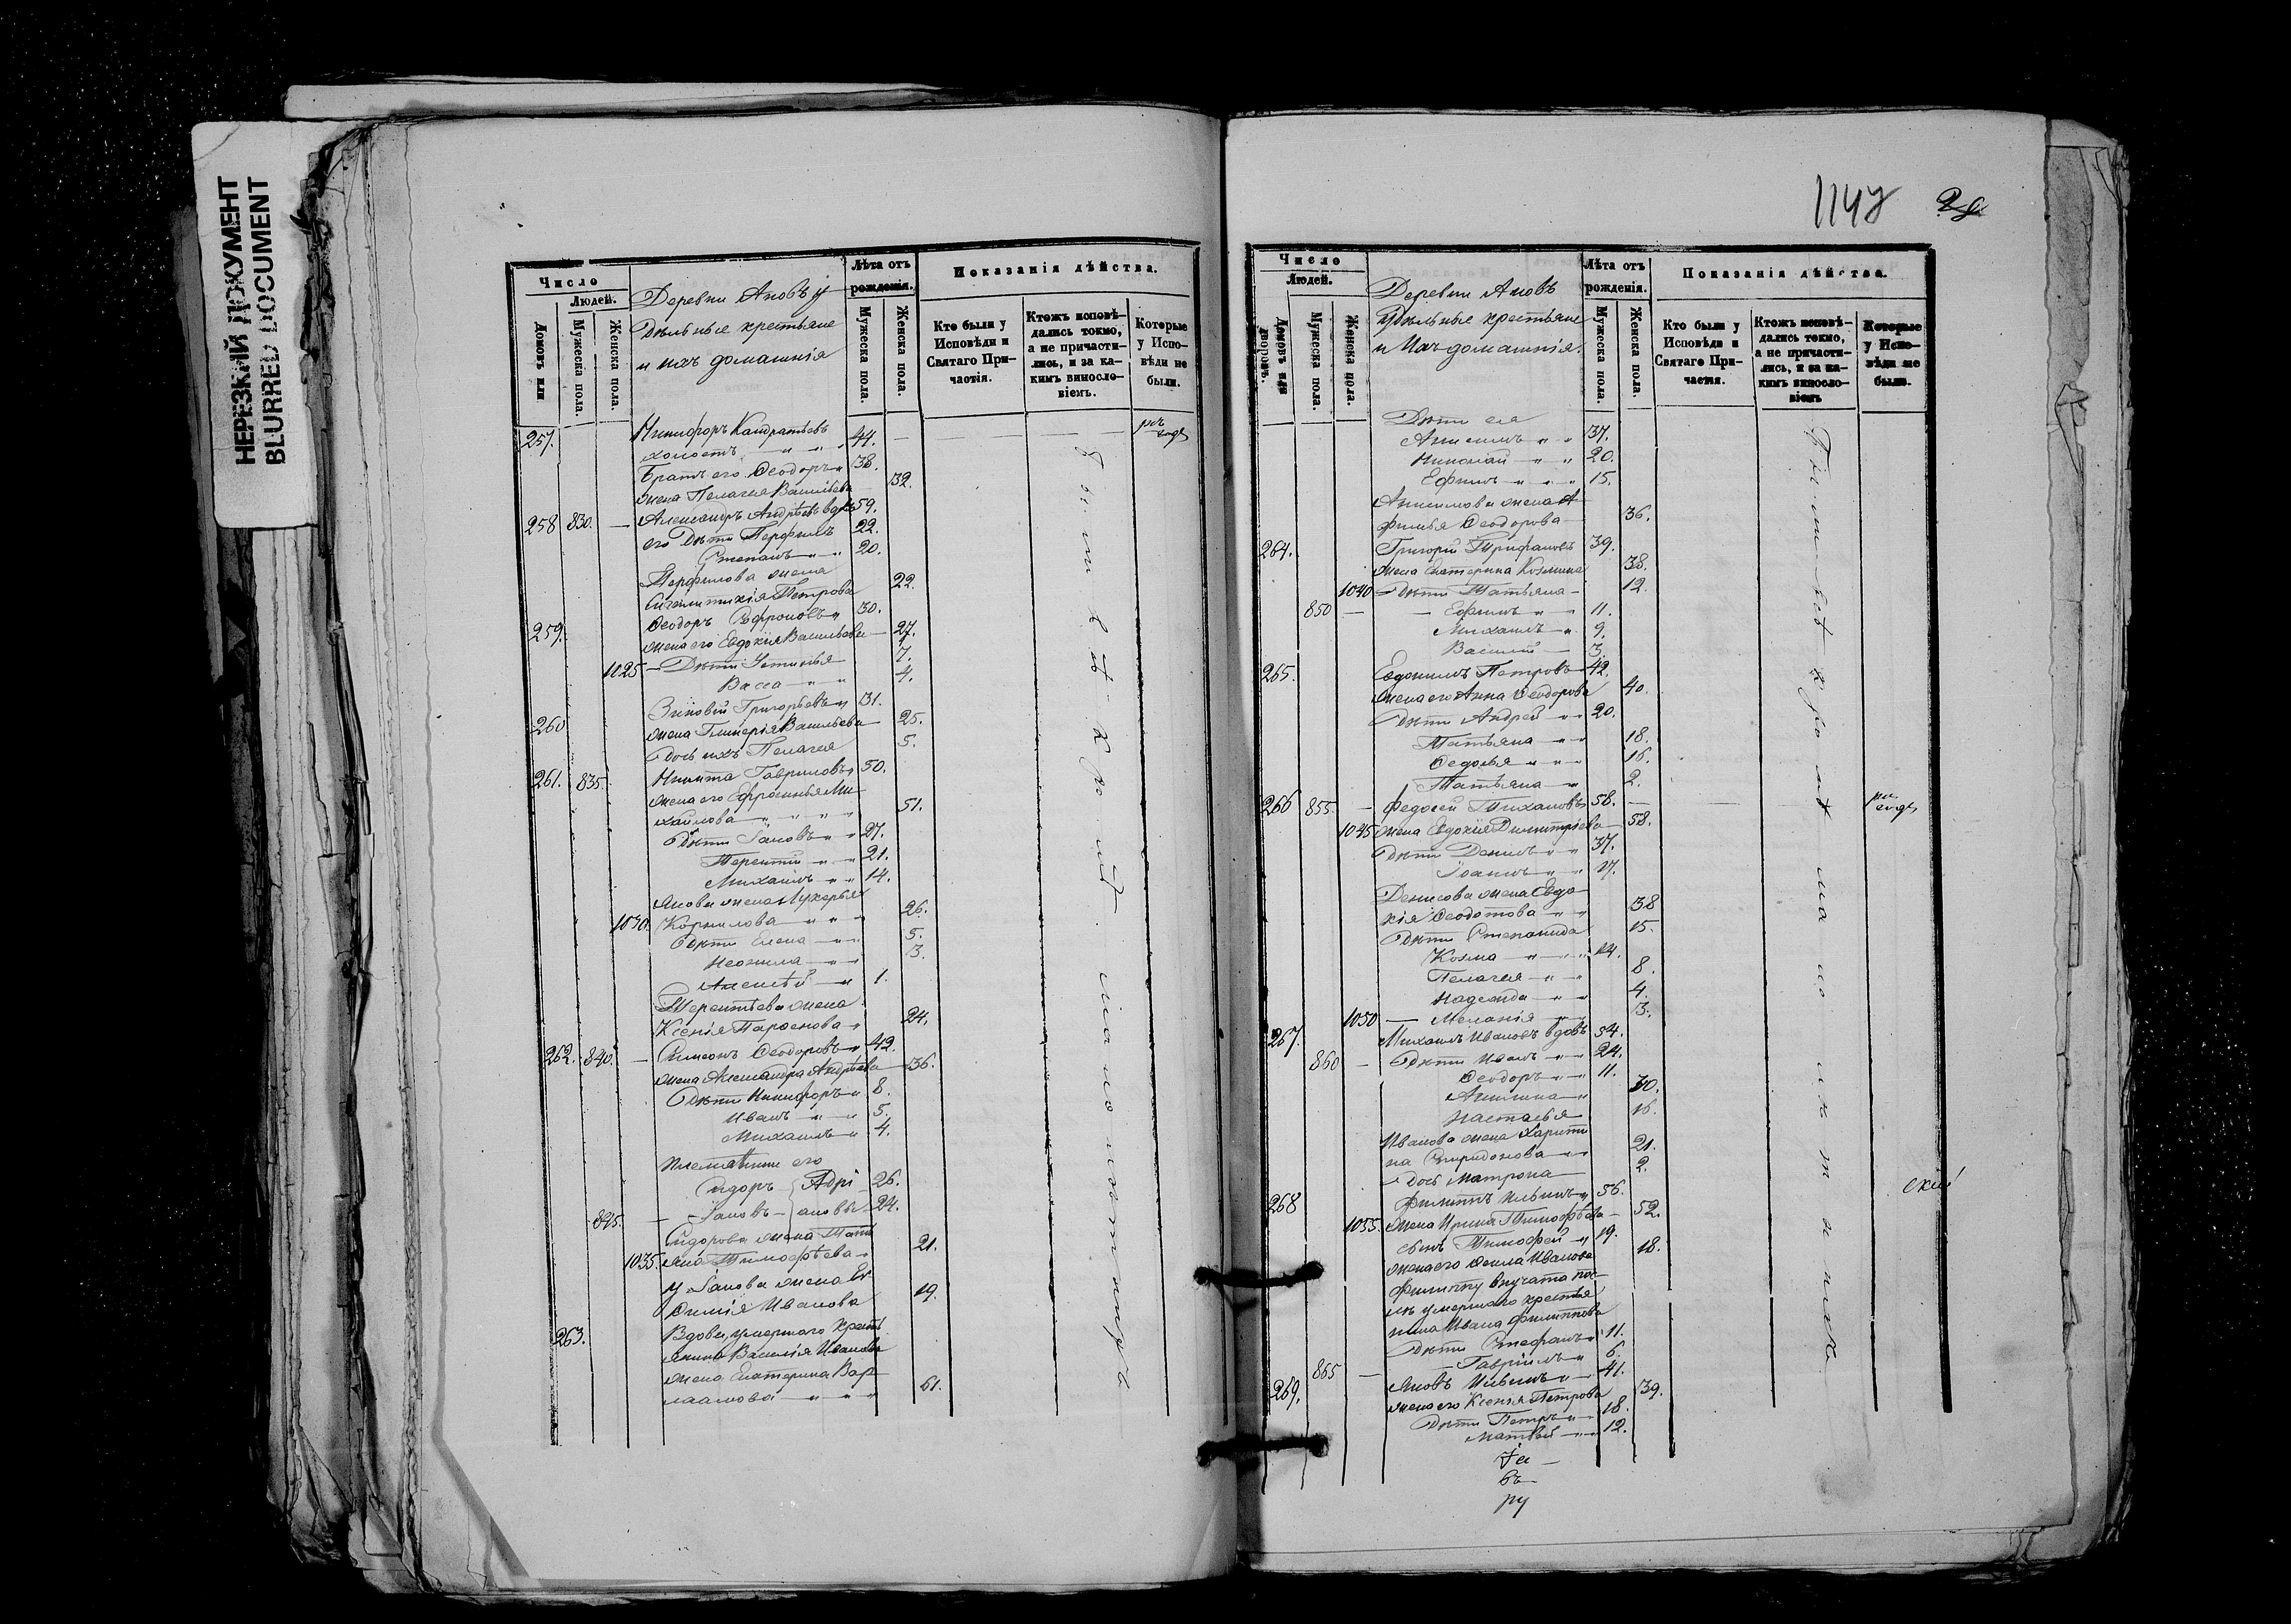 НЕРЕЗКИЙ ДОКУМЕНТ
BLURRED DOCUMENT
Число
Людей.
Домовъ или
Мужеска пола.
Женска пола.
Деревни Аковъ у
дѣльные крестьяне
и ихъ домашнія
Лѣта отъ рожденія.
Мужеска пола.
Женска пола.
Показанія дѣйства.
Кто были у Исповѣди и Святаго Причастія.
Ктожъ исповѣдались токмо, а не причастились, и за какимъ винословіемъ.
Которые у Исповѣди не были.
257. Никифоръ Кандратьевъ
холостъ 44.
Братъ его Ѳеодоръ 38.
жена Пелагея Васильева 32.
258 830. Александръ Андрѣевъ вдвъ 59.
его Дѣти Перфилъ 22.
Степанъ 20.
Перфилова жена
Петрова 22.
259. Ѳеодоръ Софроновъ 30.
жена его Евдокія Васильева 27.
1025 Дѣти Устинья 7.
Васса 4.
260 Зиновій Григорьевъ 31.
жена Гликерія Васильева 25.
Дочь ихъ Пелагея 5.
261. 835. Никита Гавриловъ 50.
жена его Ефросинья Ми
хайлова 51.
Дѣти Іаковъ 27.
Терентій 21.
Михаилъ 14.
Якова жена Лукерья
1030. Корнилова 26.
Дѣти Елена 5.
Неонила 3.
Алексѣй 1.
Терентьева жена
Ксенія Парѳенова 24.
262. 840. Симеонъ Ѳеодоровъ 42.
жена Александра Андрѣева 36.
Дѣти Никифоръ 8.
Иванъ 5.
Михаилъ 4.
племянники его
Сидоръ Адрі 26.
845. Іаковъ ановы 24.
Сидорова жена Тать
1035. яна Тимофѣева 21.
Іакова жена Ев
ѳимія Иванова 19.
263. Вдова, умершаго крест
янина Василія Иванова
жена Екатерина Вар
лаамова 61.
1147
Число
Людей.
Домовъ или дворовъ.
Мужеска пола.
Женска пола.
Деревни Аковъ
Удѣльные крестьяне
и Ихъ домашнія.
Лѣта отъ рожденія.
Мужеска пола.
Женска пола.
Показанія дѣйства.
Кто были у Исповѣди и Святаго Причастія.
Ктожъ исповѣдались токмо, а не причастились, и за какимъ винословіемъ
Которые у Исповѣди не были.
Дѣти ея
Анисимъ 37.
Николай 20.
Ефимъ 15.
Анисимова жена А
финья Ѳеодорова 36.
264. Григорій Трифановъ 39.
жена Екатерина Козмина 38.
1040 Дѣти Татьяна 12.
850 Ефимъ 11.
Михаилъ 9.
Василій 3.
265. Евдокимъ Петровъ 42.
жена его Анна Ѳеодорова 40.
Дѣти Андрей 20.
Татьяна 18.
Ѳедосья 16.
Татьяна 2.
266 855. Федосей Тихановъ 58.
1045 жена Евдокія Димитріева 58.
Дѣти Денисъ 37.
Іоаннъ 17.
Денисова жена Евдо
кія Ѳеодотова 38
Дѣти Степанида 15.
Козма 14.
Пелагея 8.
Надежда 4.
1050 Меланія 3.
267. Михаилъ Ивановъ вдовъ 54.
860 Дѣти Иванъ 24.
Ѳеодоръ 11.
Акилина
Настасья 16.
Иванова жена Харити
на Спиридонова 21.
Дочь Матрона 2.
268 Филиппъ Ильинъ 56.
1055. жена Ирина Тимофѣева 52.
сынъ Тимофей 19.
жена его Ѳекла Иванова 18.
Филиппу внучата пос
лѣ умершаго крестья
нина Ивана Филиппова
Дѣти Стефанъ 11.
865 Гавріилъ 6.
269. Яковъ Ильинъ 41.
жена его Ксенія Петрова 39.
Дѣти Петръ 18.
Матвей 12.
бъ
ру